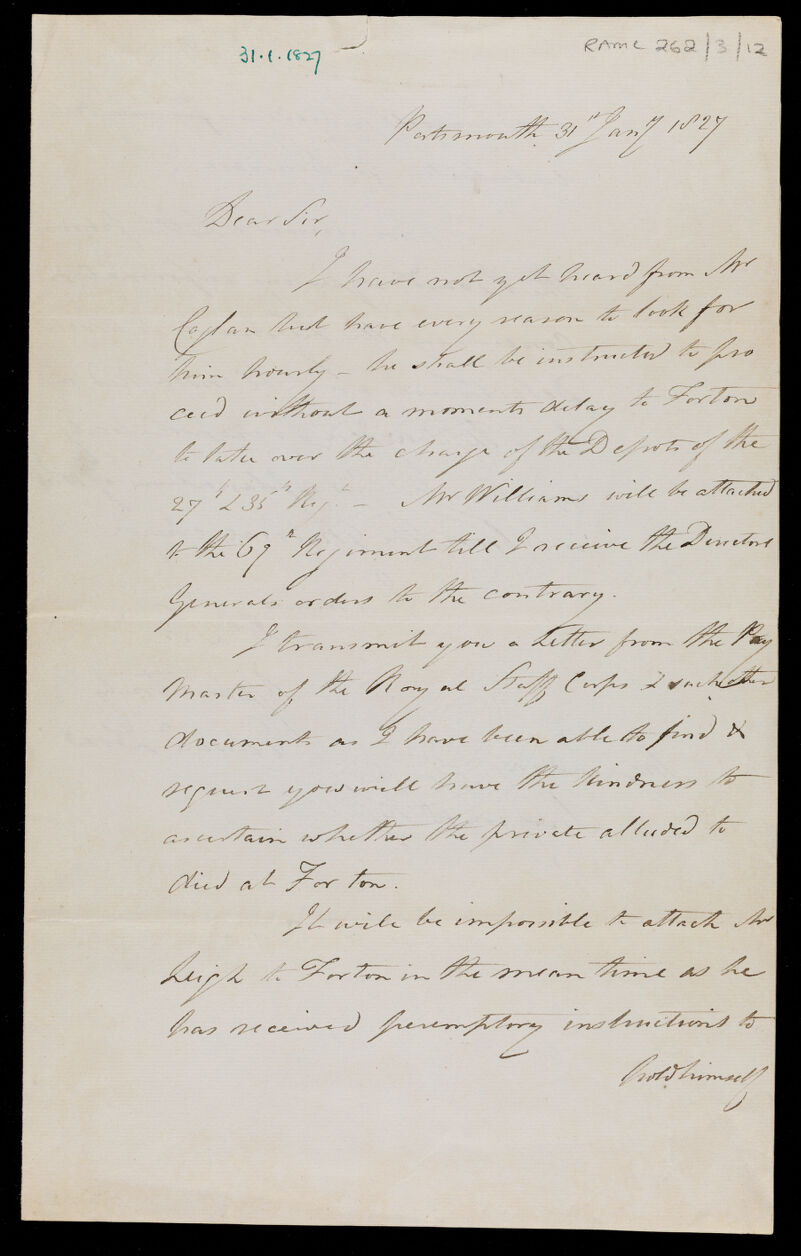 31.1.1827
RAMC 262/3/12
Portsmouth 31st Jany 1827
Dear Sir,
I have not yet heard from Mr
but have every reason to look for
him hourly - he shall be instructed to pro
ceed without a moments delay to Forton
to take over the charge of the Depots of the
27th & 35th Regts - Mr Williams will be attached
to the 69th Regiment till I receive the Director
Generals orders to the contrary.
I transmit you a Letter from the Pay
Master of the Royal Staff Corps & such other
documents as I have been able to find &
request you will have the kindness to
ascertain whether the private alluded to
died at Forton.
It will be impossible to attach Mr
Leigh to Forton in the mean time as he
has received peremptory instructions to
hold himself